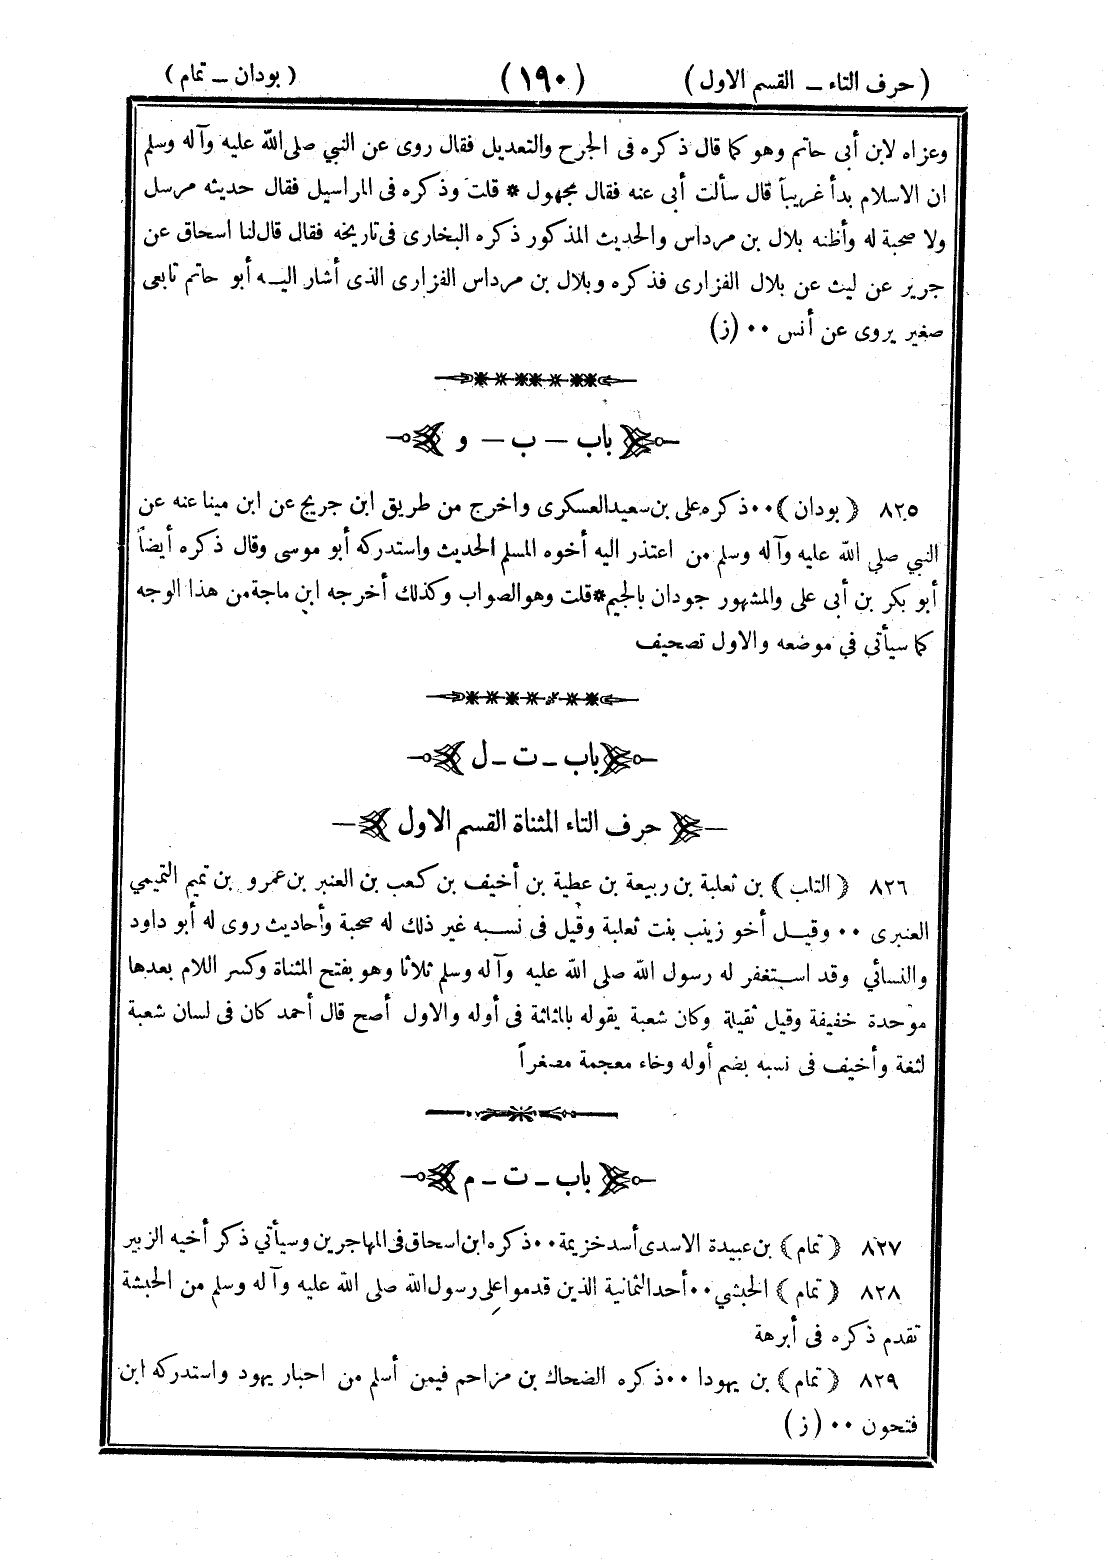 ( حرف التاء ـ القسم الاول )
( ١٩٠ )
( بودان ـ تمام )
وعزاه لابن أبى حاتم وهو كما قال ذكره فى الجرح والتعديل فقال روى عن النبي صلى الله عليه وآله وسلم
ان الاسلام بدأ غريباً قال سألت أبى عنه فقال مجهول * قلت وذكره فى المراسيل فقال حديثه مرسل
ولا صحبة له وأظنه بلال بن مرداس والحديث المذكور ذكره البخارى فى تاريخه فقال قال لنا اسحاق عن
جرير عن ليث عن بلال الفزارى فذكره وبلال بن مرداس الفزارى الذى أشار اليه أبو حاتم تابعى
صغير يروى عن أنس ٠٠ (ز)
باب — ب — و
٨٢٥ ( بودان ) ٠٠ ذكره على بن سعيد العسكرى واخرج من طريق ابن جريج عن ابن مينا عنه عن
النبي صلي الله عليه وآله وسلم من اعتذر اليه أخوه المسلم الحديث واستدركه أبو موسى وقال ذكره أيضاً
أبو بكر بن أبى على والمشهور جودان بالجيم * قلت وهو الصواب وكذلك أخرجه ابن ماجة من هذا الوجه
كما سيأتى في موضعه والاول تصحيف
باب ـ ت ـ ل
حرف التاء المثناة القسم الاول
٨٢٦ ( التلب ) بن ثعلبة بن ربيعة بن عطية بن أخيف بن كعب بن العنبر بن عمرو بن تميم التميمي
العنبرى ٠٠ وقيل أخو زينب بنت ثعلبة وقيل فى نسبه غير ذلك له صحبة وأحاديث روى له أبو داود
والنسائي وقد استغفر له رسول الله صلى الله عليه وآله وسلم ثلاثا وهو بفتح المثناة وكسر اللام بعدها
موحدة خفيفة وقيل ثقيلة وكان شعبة يقوله بالمثلثة فى أوله والاول أصح قال أحمد كان فى لسان شعبة
لثغة وأخيف فى نسبه بضم أوله وخاء معجمة مصغراً
باب ـ ت ـ م
٨٢٧ ( تمام ) بن عبيدة الاسدى أسد خزيمة ٠٠ ذكره ابن اسحاق فى المهاجرين وسيأتي ذكر أخيه الزبير
٨٢٨ ( تمام ) الحبشي ٠٠ أحد الثمانية الذين قدموا على رسول الله صلى الله عليه وآله وسلم من الحبشة
تقدم ذكره فى أبرهة
٨٢٩ ( تمام ) بن يهودا ٠٠ ذكره الضحاك بن مزاحم فيمن أسلم من احبار يهود واستدركه ابن
فتحون ٠٠ ( ز )